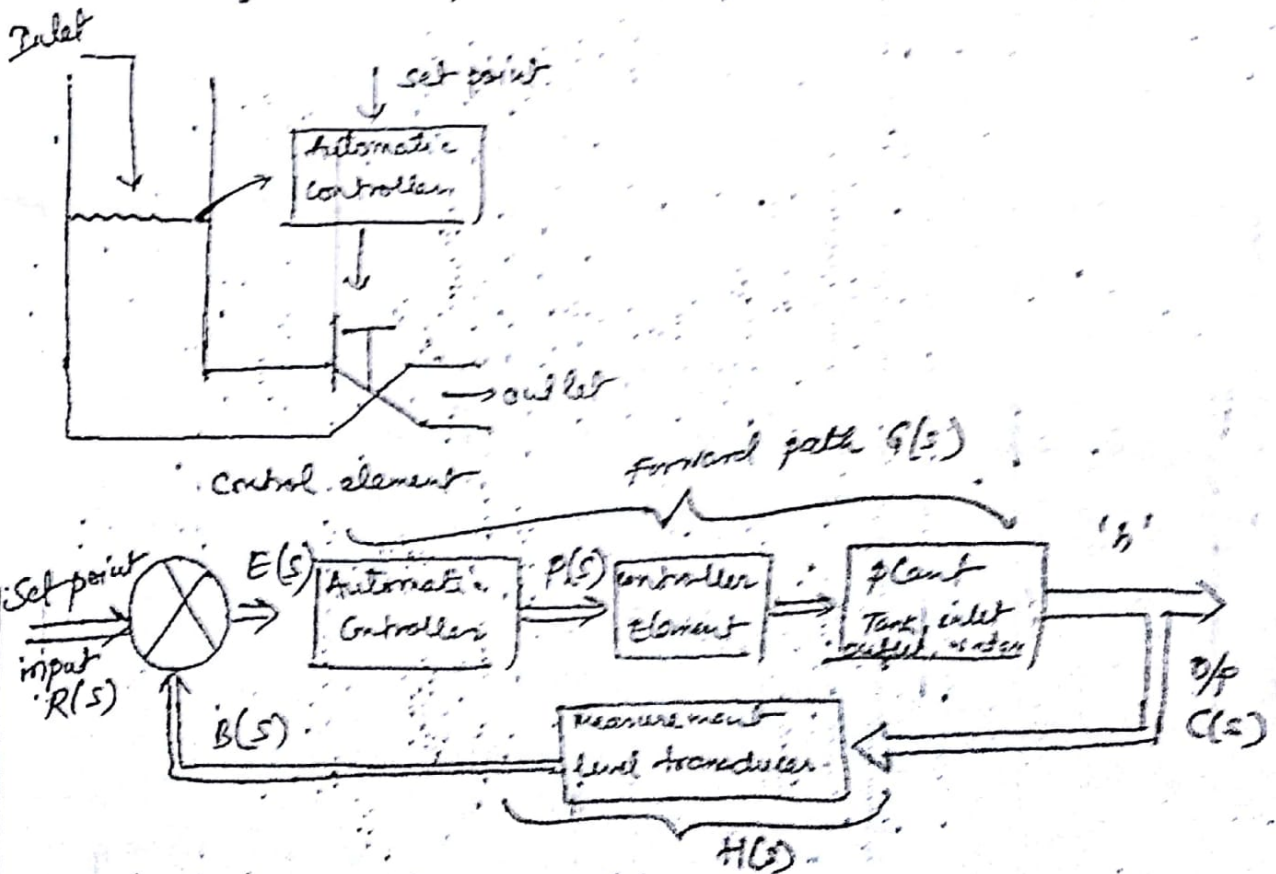 Inlet
set point
Automatic
Controller
outlet
Control element
Forward path G(s)
'h'
Set point
input
R(s)
E(s)
Automatic
Controller
P(s)
Controller
Element
plant
Tank, inlet
O/p
C(s)
B(s)
Measurement
level transducer
H(s)